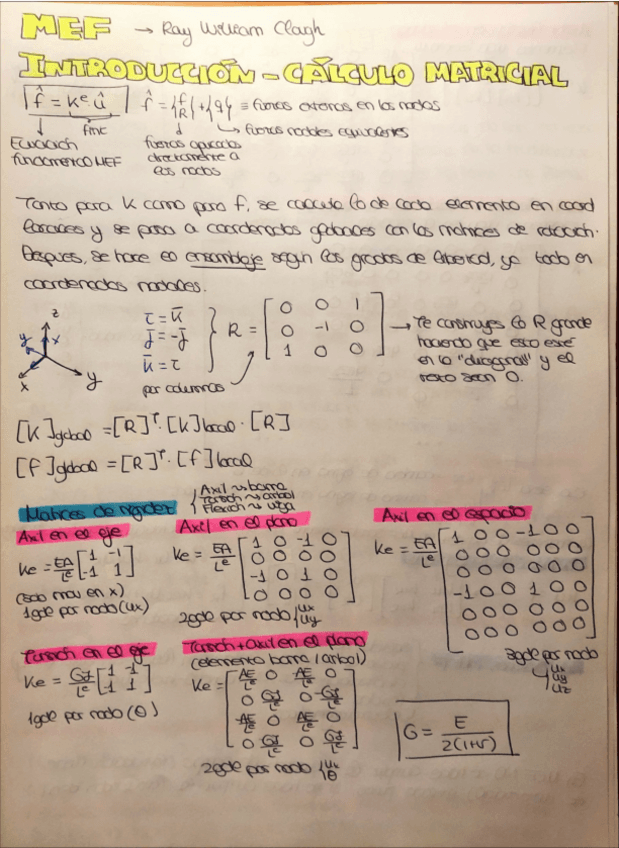 MEF → Ray William Clogh
INTRODUCCIÓN - CÁLCULO MATRICIAL
f̂ = kᵉ·û f̂ = {f/R} + {q} ≡ fuerzas externas en los nodos
fmc ↳ fuerzas nodales equivalentes
Ecuación fuerzas aplicadas
fundamental MEF directamente a
los nodos
Tanto para K como para f, se calcula lo de cada elemento en coord
locales y se pasa a coordenadas globales con las matrices de rotación.
Después, se hace el ensamblaje según los grados de libertad, ya todo en
coordenadas nodales.
z
y x
x y
ī = k̄
j̄ = -j̄
k̄ = ī
por columnas
R = [0 0 1
0 -1 0
1 0 0]
→ Te construyes la R grande
haciendo que esto esté
en la "diagonal" y el
resto sean 0.
[K]global = [R]ᵀ·[K]local·[R]
[f]global = [R]ᵀ·[f]local
Matrices de rigidez { Axil → barra
Torsión → árbol
Flexión → viga
Axil en el eje
Ke = EA/Lᵉ [1 -1
-1 1]
(solo mov en x)
1gdl por nodo (ux)
Axil en el plano
Ke = EA/Lᵉ [1 0 -1 0
0 0 0 0
-1 0 1 0
0 0 0 0]
2gdl por nodo {ux
uy
Axil en el espacio
Ke = EA/Lᵉ [1 0 0 -1 0 0
0 0 0 0 0 0
0 0 0 0 0 0
-1 0 0 1 0 0
0 0 0 0 0 0
0 0 0 0 0 0]
3gdl por nodo
{ux
uy
uz
Torsión en el eje
Ke = GJ/Lᵉ [1 -1
-1 1]
1gdl por nodo (θ)
Torsión + axil en el plano
(elemento barra / árbol)
Ke = [AE/Lᵉ 0 -AE/Lᵉ 0
0 GJ/Lᵉ 0 -GJ/Lᵉ
-AE/Lᵉ 0 AE/Lᵉ 0
0 -GJ/Lᵉ 0 GJ/Lᵉ]
2gdl por nodo {ux
θ
G = E / 2(1+ν)